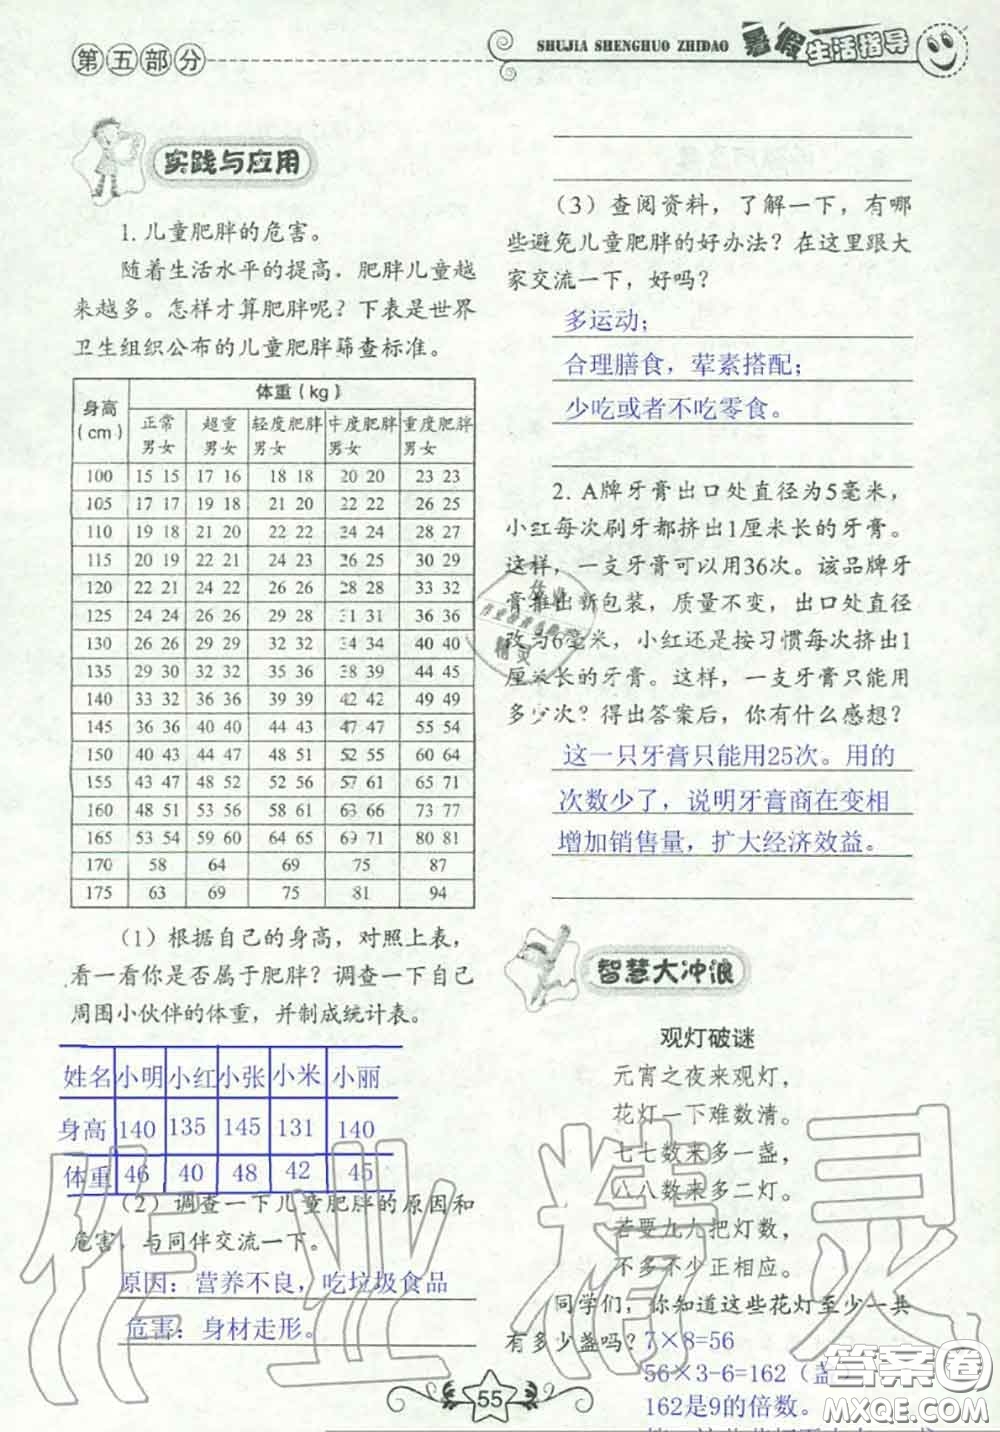 第五部分
SHUJIA SHENGHUO ZHIDAO 暑假生活指导
实践与应用
1. 儿童肥胖的危害。
随着生活水平的提高，肥胖儿童越
来越多。怎样才算肥胖呢？下表是世界
卫生组织公布的儿童肥胖筛查标准。
身高(cm) 体重(kg)
正常 超重 轻度肥胖 中度肥胖 重度肥胖
男女 男女 男女 男女 男女
100 15 15 17 16 18 18 20 20 23 23
105 17 17 19 18 20 20 22 22 26 25
110 19 18 21 20 22 22 24 24 28 27
115 20 19 22 21 24 24 26 26 30 29
120 22 21 24 24 26 26 28 28 33 32
125 24 23 27 26 29 28 31 31 36 36
130 27 26 29 29 32 32 34 34 40 40
135 29 30 32 32 35 35 38 38 44 44
140 33 33 36 36 40 40 43 43 49 49
145 36 36 40 40 44 44 47 47 55 54
150 40 43 44 47 48 51 52 55 60 64
155 43 47 48 51 52 56 57 61 65 71
160 48 51 53 56 58 62 62 67 73 77
165 53 54 59 60 64 65 69 71 80 81
170 58 64 69 75 87
175 63 69 75 81 94
（1）根据自己的身高，对照上表，
看一看你是否属于肥胖？调查一下自己
周围小伙伴的体重，并制成统计表。
姓名 小明 小红 小张 小米 小丽
身高 140 135 145 131 140
体重 46 40 48 42 45
（2）调查一下儿童肥胖的原因和
危害，与同伴交流一下。
原因：营养不良，吃垃圾食品
危害：身材走形。
（3）查阅资料，了解一下，有哪
些避免儿童肥胖的好办法？在这里跟大
家交流一下，好吗？
多运动；
合理膳食，荤素搭配；
少吃或者不吃零食。
2. A牌牙膏出口处直径为5毫米，
小红每次刷牙都挤出1厘米长的牙膏。
这样，一支牙膏可以用36次。该品牌牙
膏推出新包装，质量不变，出口处直径
改为6毫米，小红还是按习惯每次挤出1
厘米长的牙膏。这样，一支牙膏只能用
多少次？得出答案后，你有什么感想？
这一只牙膏只能用25次。用的
次数少了，说明牙膏商在变相
增加销售量，扩大经济效益。
智慧大冲浪
观灯破谜
元宵之夜来观灯，
花灯一下难数清。
七七数来多一盏，
八八数来多二灯。
若要九九把灯数，
不多不少正相应。
同学们，你知道这些花灯至少一共
有多少盏吗？7×8=56
56×3-6=162（盏）
162是9的倍数。
55
作业精灵
答案圈
MXQE.COM